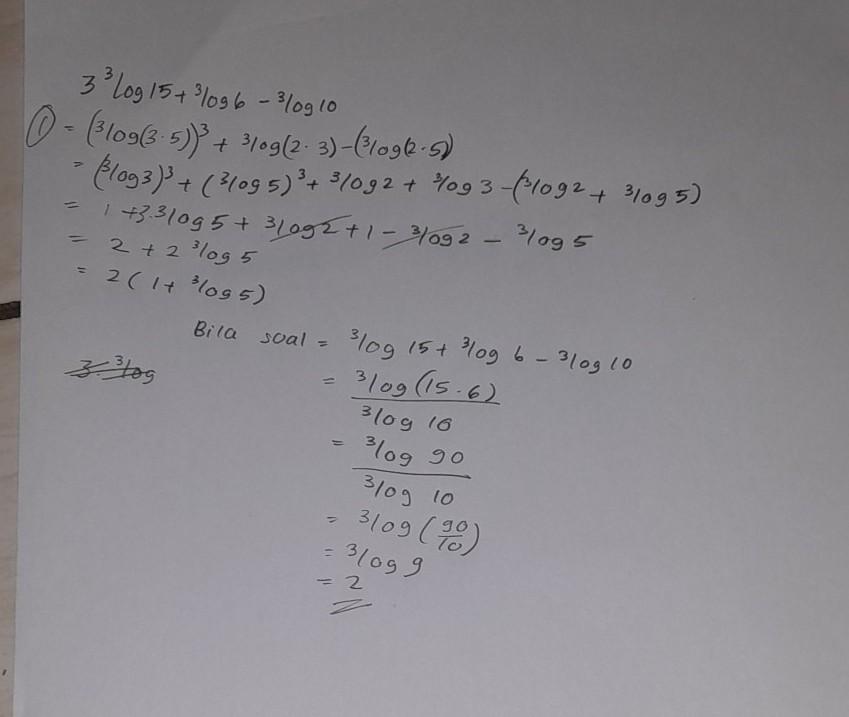 3 ³log 15 + ³log 6 - ³log 10
① = (³log(3·5))³ + ³log(2·3) - (³log(2·5)
= (³log3)³ + (³log 5)³ + ³log 2 + ³log 3 - (³log 2 + ³log 5)
= 1 + 3·³log 5 + ³log 2 + 1 - ³log 2 - ³log 5
= 2 + 2 ³log 5
= 2 ( 1 + ³log 5)
Bila soal = ³log 15 + ³log 6 - ³log 10
3·³log
= ³log (15·6)
³log 10
= ³log 90
³log 10
= ³log (90/10)
= ³log 9
= 2